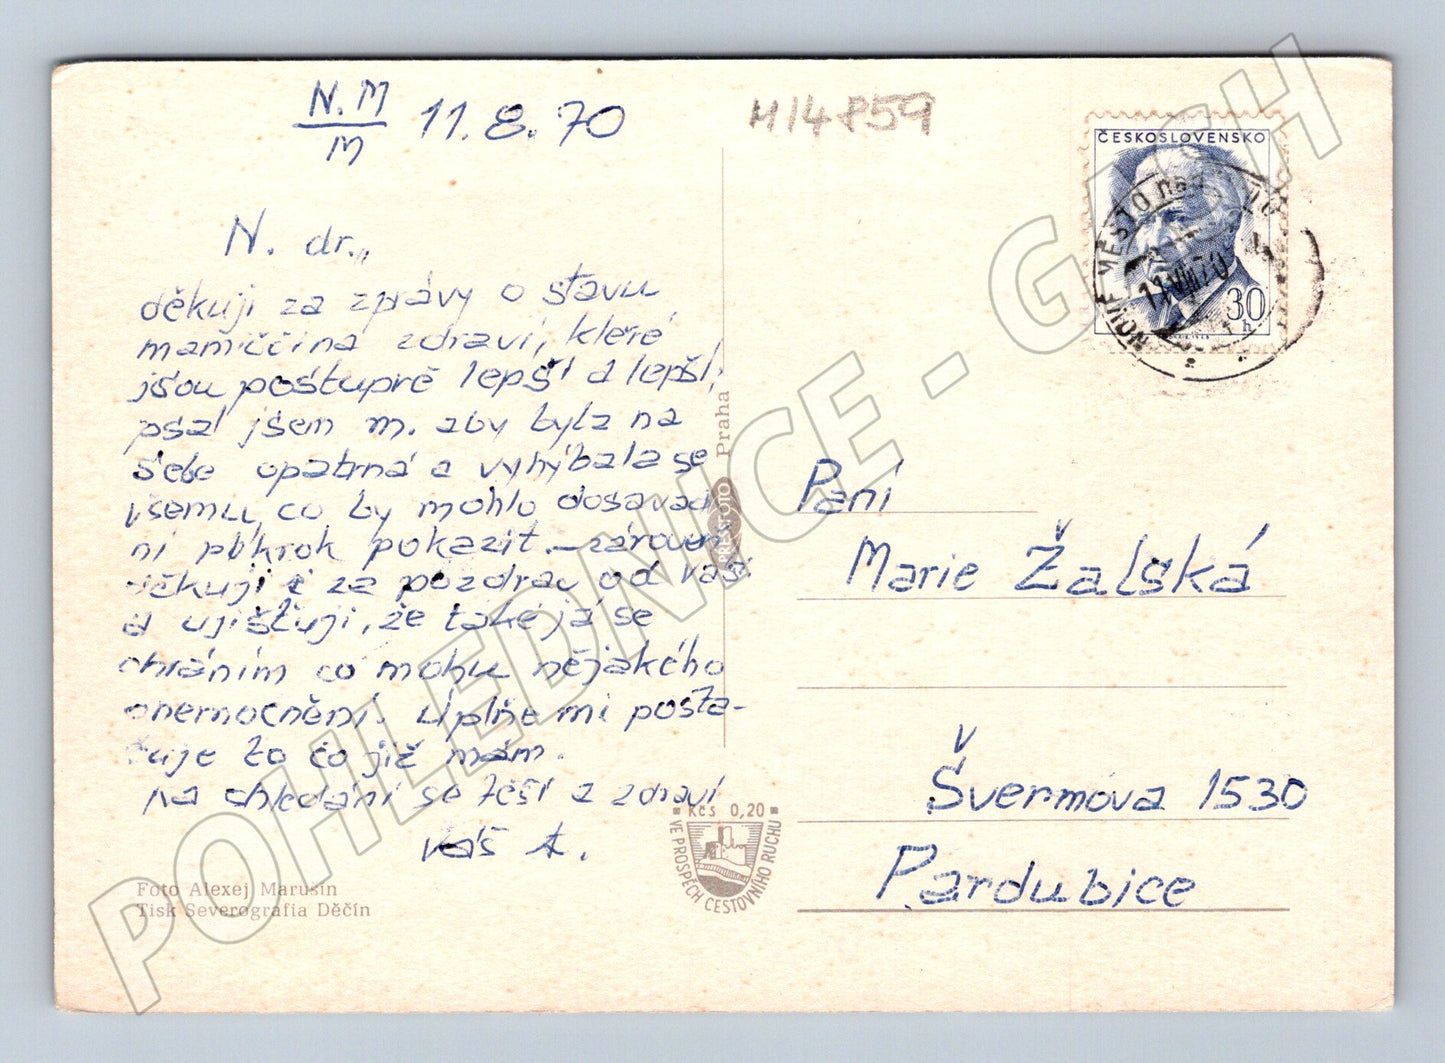 N.M
M
11.8.70
H14859
N. dr.,,
děkuji za zprávy o stavu
mamiččina zdraví, které
jsou postupně lepší a lepší,
psal jsem m. aby byla na
sebe opatrná a vyhýbala se
všemu, co by mohlo dosavad
ní pokrok pokazit. – zároveň
děkuji i za pozdrav od vás
a ujišťuji, že také já se
chráním co mohu nějakého
onemocnění. Úplně mi posta-
čuje to co již mám.
Na shledání se těší a zdraví
Váš A.
Foto Alexej Marusin
Tisk Severografia Děčín
PRESSFOTO Praha
Kčs 0,20
VE PROSPĚCH CESTOVNÍHO RUCHU
ČESKOSLOVENSKO
30
h
NOVÉ MĚSTO nad
11.VIII.70
Paní
Marie Žalská
Švermova 1530
Pardubice
POHLEDNICE - GACH